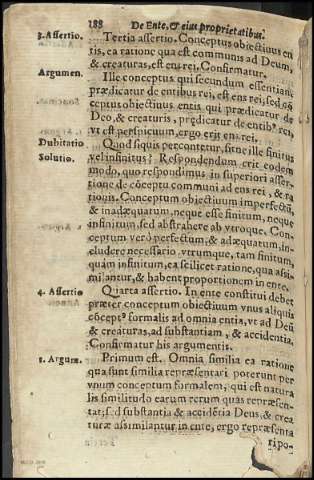 188 De Ente, & eius proprietatibus.
3. Assertio. Tertia assertio. Conceptus obiectiuus en
tis, ea ratione qua est communis ad Deum,
& creaturas, est ens rei, Confirmatur.
Argumen. Ille conceptus qui secundum essentiam
prædicatur de entibus rei, est ens rei, sed cō
ceptus obiectiuus entis qui prædicatur de
Deo, & creaturis, predicatur de entibꝰ rei,
vt est perspicuum, ergo erit ens rei.
Dubitatio Quod si quis percontetur, sit ne ille finitus
Solutio. vel infinitus? Respondendum erit eodem
modo, quo respondimus in superiori asser-
tione de cōceptu communi ad ens rei, & ra
tionis. Conceptum obiectiuum imperfectū,
& inadæquatum, neque esse finitum, neque
infinitum, sed abstrahere ab vtroque. Con-
ceptum verò perfectum, & adæquatum, in-
cludere necessario vtrumque, tam finitum,
quàm infinitum, ea scilicet ratione, qua assi
milantur, & habent proportionem in ente.
4. Assertio Quarta assertio. In ente constitui debet
præter conceptum obiectiuum vnus aliquis
cōceptꝰ formalis ad omnia entia, vt ad Deū
& creaturas, ad substantiam, & accidentia,
Confirmatur his argumentis.
1. Argum. Primum est. Omnia similia ea ratione
qua sunt similia repræsentari poterunt per
vnum conceptum formalem, qui est natura
lis similitudo earum rerum quas repræsen-
tat; sed substantia & accidētia Deus, & crea
turæ assimilantur in ente, ergo repræsenta
ripo-